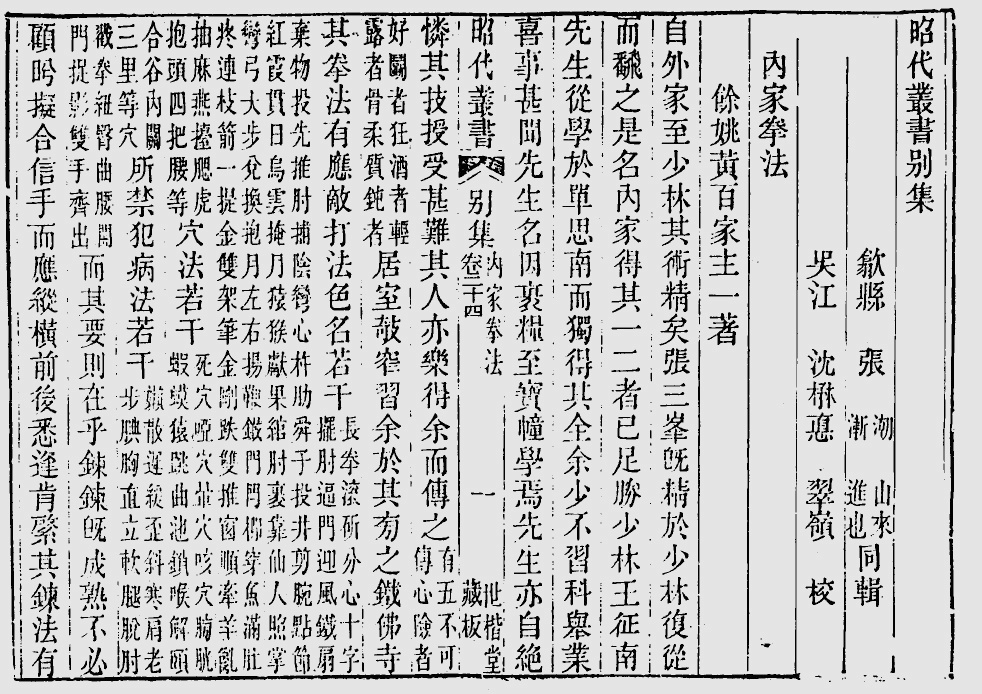 昭代叢書別集
歙縣 張 潮 山來 漸 進也 同輯
吳江 沈楙惪 翠嶺 校
內家拳法
餘姚黃百家主一著
自外家至少林其術精矣張三峯旣精於少林復從
而翻之是名內家得其一二者已足勝少林王征南
先生從學於單思南而獨得其全余少不習科舉業
喜事甚聞先生名因裹糧至寶幢學焉先生亦自絕
昭代叢書 別集 內家拳法 卷二十四 一 世楷堂 藏板
憐其技授受甚難其人亦樂得余而傳之有五不可傳心險者
好鬭者狂酒者輕露者骨柔質鈍者居室欹窄習余於其旁之鐵佛寺
其拳法有應敵打法色名若干長拳滚斫分心十字擺肘逼門迎風鐵扇
棄物投先推肘捕陰彎心杵肋舜子投井剪腕點節紅霞貫日烏雲掩月猿猴獻果綰肘裹靠仙人照掌
彎弓大步兌換抱月左右揚鞭鐵門閂柳穿魚滿肚疼連枝箭一提金雙架筆金剛跌雙推窗順牽羊亂
抽麻燕擡腮虎抱頭四把腰等穴法若干死穴啞穴暈穴咳穴膀胱蝦蟆猿跳曲池鎖喉解頤
合谷內關三里等穴所禁犯病法若干嬾散遲緩歪斜寒肩老步腆胸直立軟腿脫肘
戳拳紐臀曲腰開門捉影雙手齊出而其要則在乎鍊鍊旣成熟不必
顧盼擬合信手而應縱橫前後悉逢肯綮其鍊法有